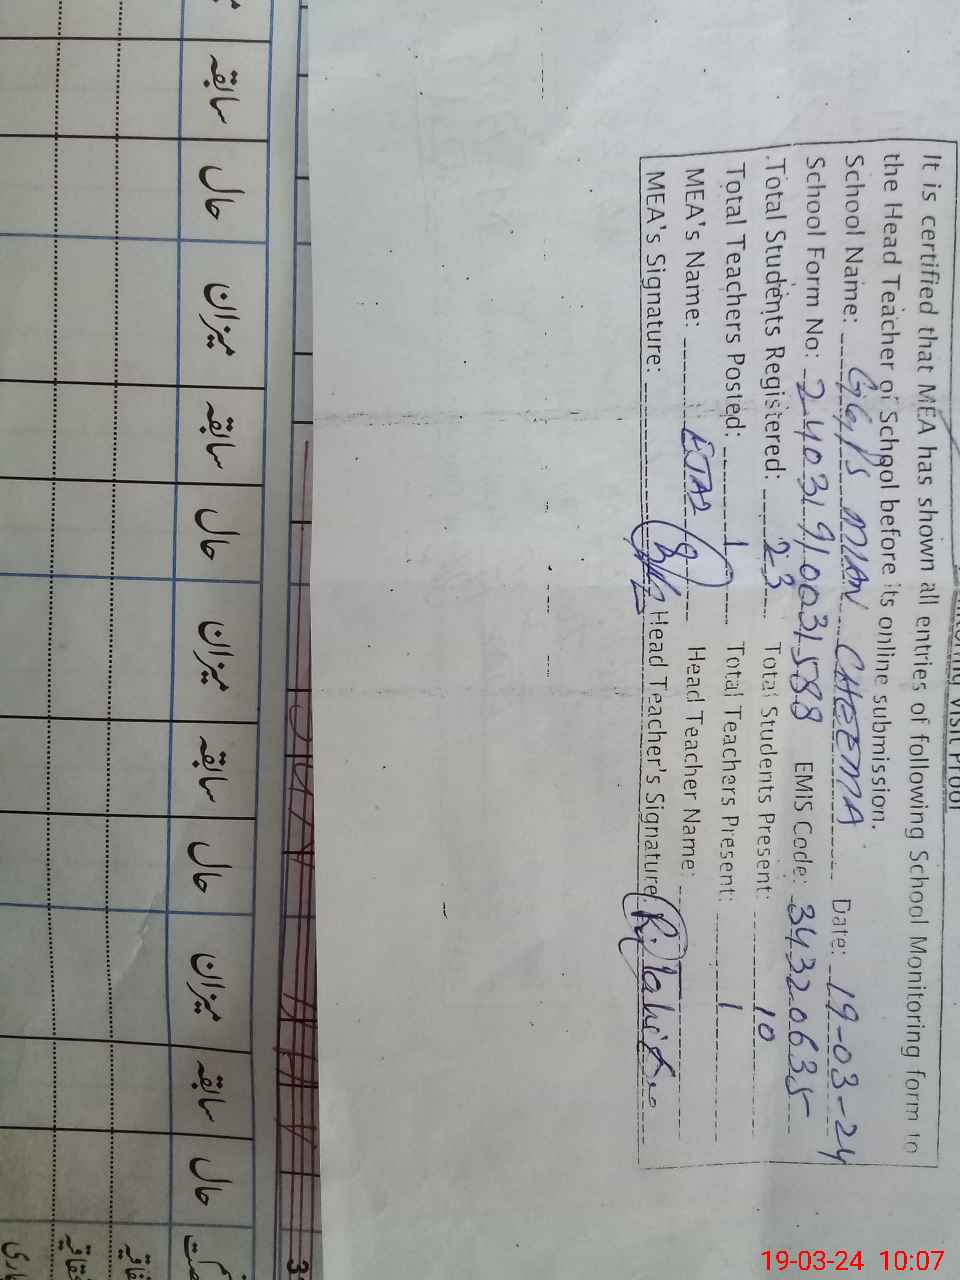 Visit Proof
It is certified that MEA has shown all entries of following School Monitoring form to
the Head Teacher of School before its online submission.
School Name: GGPS MIAN CHEEMA Date: 19-03-24
School Form No: 24031910031588 EMIS Code: 34320635
Total Students Registered: 23 Total Students Present: 10
Total Teachers Posted: 1 Total Teachers Present: 1
MEA's Name: Head Teacher Name:
MEA's Signature: Head Teacher's Signature:
سابقہ حال میزان سابقہ حال میزان سابقہ حال میزان سابقہ حال
19-03-24 10:07